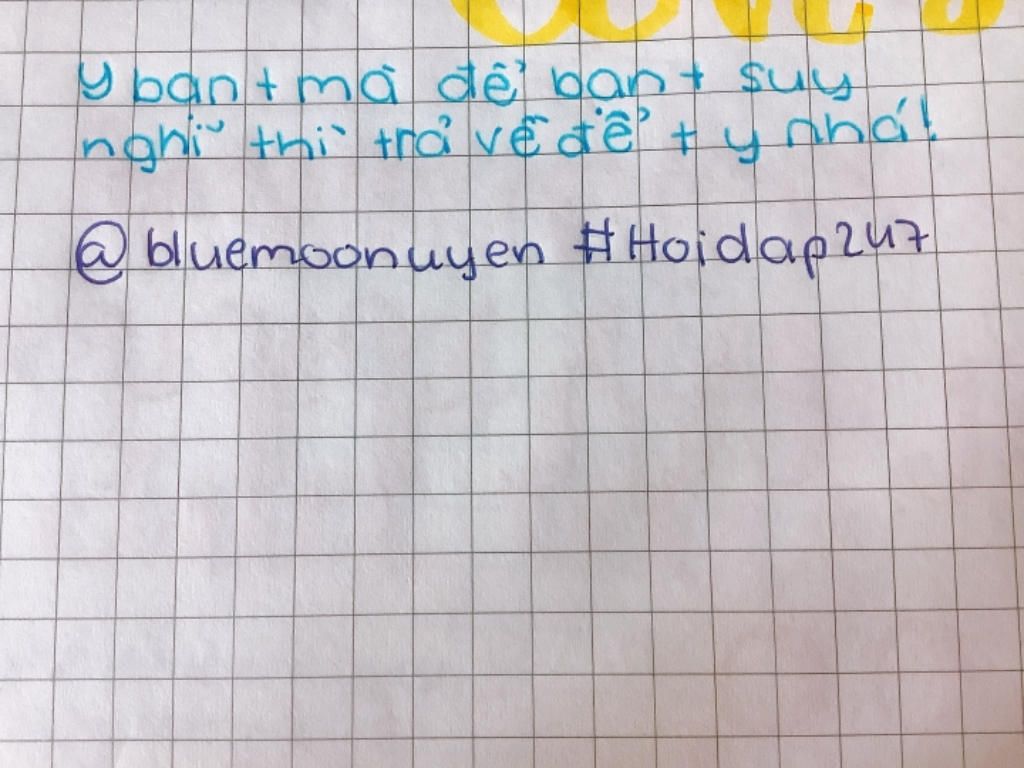 y bạn t mà để bạn t suy
nghĩ thì trả về để t y nhá!
@bluemoonuyen #Hoidap247